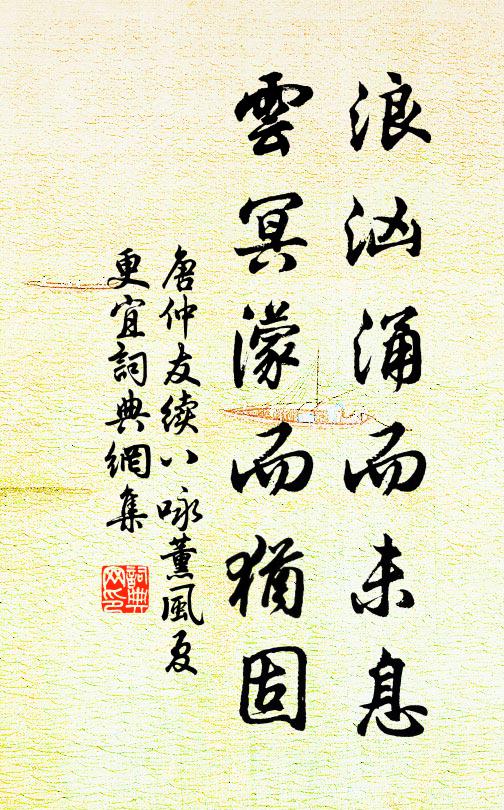 浪汹涌而未息
雲冥濛而猶固
唐仲友續八咏薰風夏
更宜詞典網集
詞典網印